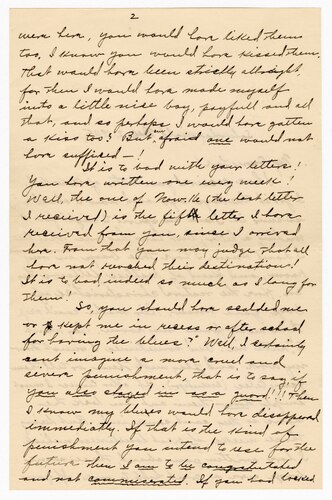 2
were here, you would have liked them
too, I know you would have kissed them.
That would have been strictly allright,
for then I would have made myself
into a little nice boy, playfull and all
that, and so perhaps I would have gotten
a kiss too? But, am afraid one would not
have sufficed—!
It is to bad with your letters!
You have written one every week!
Well, the one of Nov. 16 (the last letter
I received) is the fifth letter I have
received from you since I arrived
here. From that you may judge that all
have not reached their destination!
It is to bad indeed so much as I long for
them!
So, you should have scolded me
or kept me in recess or after school
for having the blues?" Well, I certainly
cant imagine a more cruel and
severe punishment, that is to say, if
you also stayed in as a guard!!! Then
I know my blues would have disappeared
immediately. If that is the kind of
punishment you intend to use for the
future then I am to be congratulated
and not commiserated. If you had looked